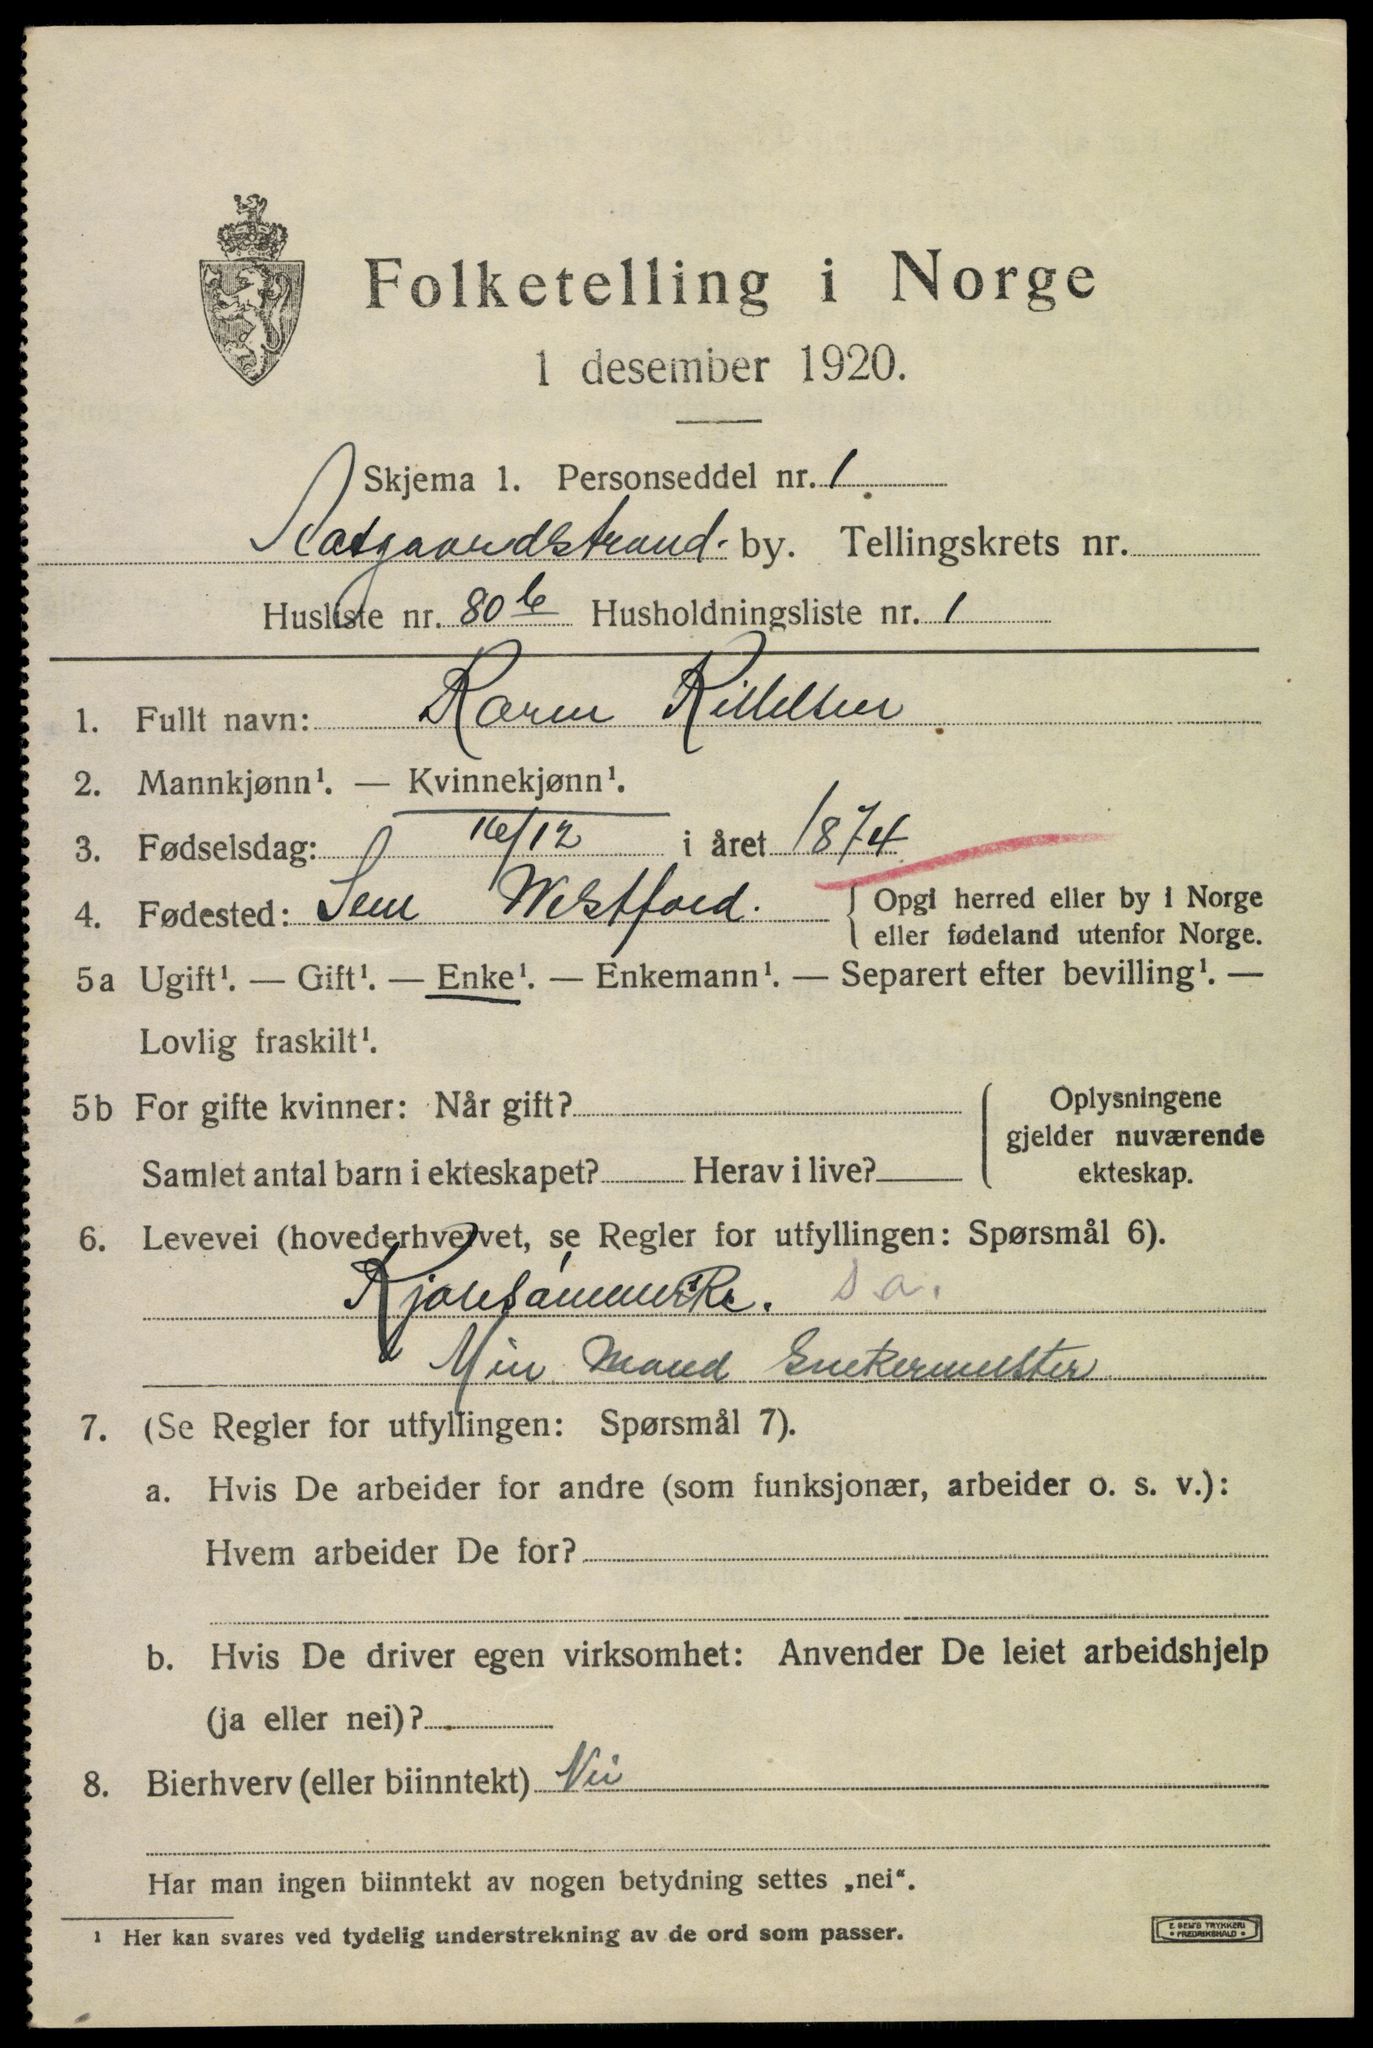 Folketelling i Norge
1 desember 1920.
Skjema 1. Personseddel nr. 1
Aasgaardstrand by. Tellingskrets nr.
Husliste nr. 80 b Husholdningsliste nr. 1
1. Fullt navn: Karen Killelsen
2. Mannkjønn¹. — Kvinnekjønn¹.
3. Fødselsdag: 16/12 i året 1874
4. Fødested: Sem Westfold. Opgi herred eller by i Norge
eller fødeland utenfor Norge.
5a Ugift¹. — Gift¹. — Enke¹. — Enkemann¹. — Separert efter bevilling¹. —
Lovlig fraskilt¹.
5b For gifte kvinner: Når gift? Oplysningene
gjelder nuværende
Samlet antal barn i ekteskapet? Herav i live? ekteskap.
6. Levevei (hovederhvervet, se Regler for utfyllingen: Spørsmål 6).
Kjolesømmerske. s a.
Min Mand Snekermester
7. (Se Regler for utfyllingen: Spørsmål 7).
a. Hvis De arbeider for andre (som funksjonær, arbeider o. s. v.):
Hvem arbeider De for?
b. Hvis De driver egen virksomhet: Anvender De leiet arbeidshjelp
(ja eller nei)?
8. Bierhverv (eller biinntekt) Nei
Har man ingen biinntekt av nogen betydning settes „nei“.
¹ Her kan svares ved tydelig understrekning av de ord som passer.
E. SEM'S TRYKKERI
• FREDRIKSHALD •